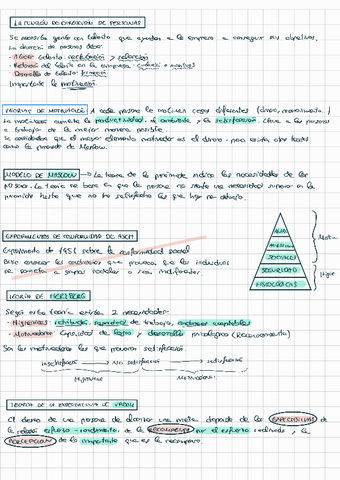 LA FUNCIÓN DE DIRECCIÓN DE PERSONAS
Se necesita gente con talento que ayuden a la empresa a conseguir sus objetivos.
La dirección de personas debe:
- talento: reclutación y selección
- Retener del talento en la empresa:
- Desarrollo de talento: formación
Importante la motivación.
TEORÍAS DE MOTIVACIÓN A cada persona le motivan cosas diferentes (dinero, reconocimiento..)
La motivación aumenta la productividad, el ambiente y la satisfacción. Lleva a las personas
a trabajar de la mejor manera posible.
Se consideraba que el mayor elemento motivador es el dinero, pero existe otras teorías
como la pirámide de Maslow.
MODELO DE MASLOW → La teoría de la pirámide indica las necesidades de las
personas. La teoría se basa en que la persona no satisface necesidad superior en la
pirámide hasta que no ha satisfecho las que hay por debajo.
EXPERIMENTOS DE CONFORMIDAD DE ASCH
Experimento de 1951 sobre la conformidad social
las condiciones que provocan que los individuos
se sometan a grupos sociales o sean indiferentes
SOCIALES
SEGURIDAD
FISIOLÓGICAS
Motiv
Higie
TEORÍA DE HERZBERG
Según esta teoría existen 2 necesidades:
- Higiénicas: retribución, seguridad de trabajo, relaciones aceptables
- Motivadoras: Capacidad de logro, desarrollo psicológico (Reconocimiento)
Son las motivadoras las que provocan satisfacción
insatisfacción No satisfacción satisfacción
Higiénicas Motivadoras
TEORÍA DE LA EXPECTATIVA DE VROOM
El deseo de una persona de alcanzar una meta depende de las EXPECTATIVAS de
la relación esfuerzo - rendimiento, de la RECOMPENSA por el esfuerzo realizado, y la
PERCEPCIÓN de lo importante que es la recompensa.